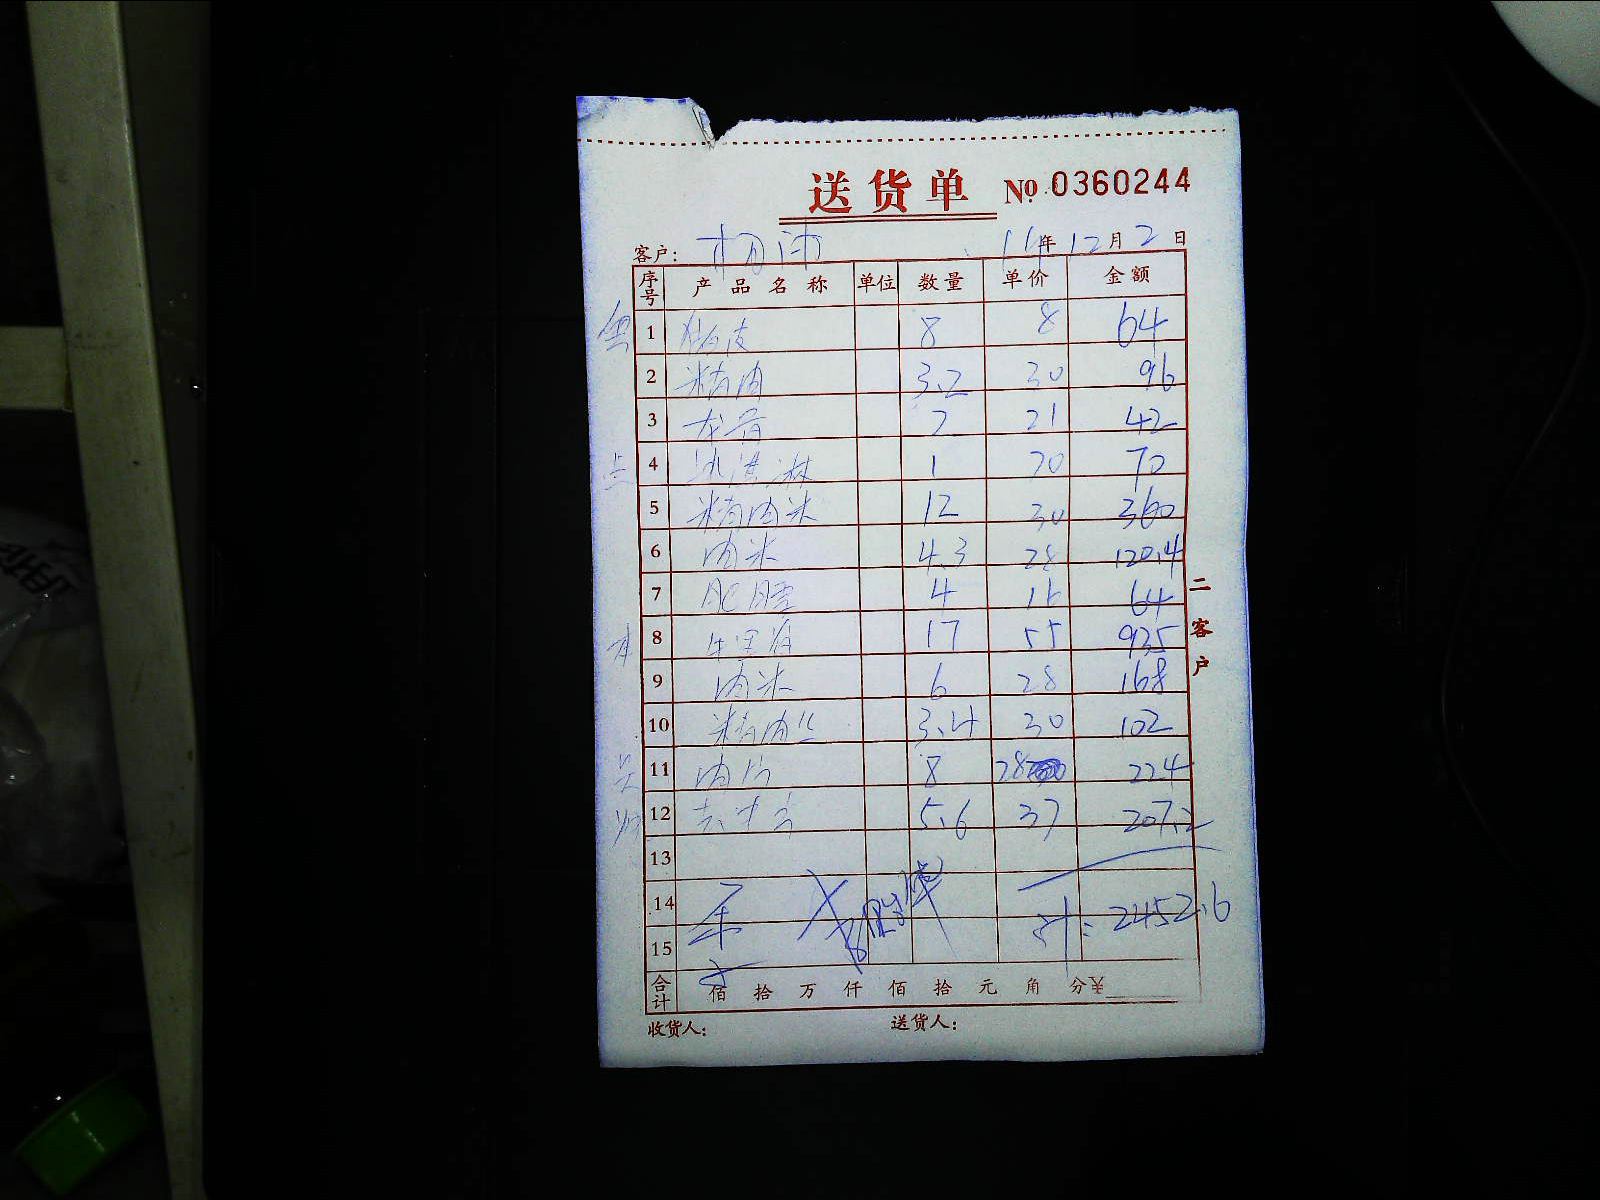 送货单 No. 0360244
客户: 11年 12月 2日
序号 产品名称 单位 数量 单价 金额
1 8 8 64
2 精肉 3.2 30 96
3 龙骨 2 21 42
4 1 70 70
5 精肉米 12 30 360
6 肉米 4.3 28 120.4
7 肥膘 4 16 64
8 17 55 935
9 肉米 6 28 168
10 精肉丝 3.4 30 102
11 肉片 8 28 224
12 5.6 37 207.2
13
14 计: 2452.6
15
合计 佰 拾 万 仟 佰 拾 元 角 分¥
收货人: 送货人:
二客户